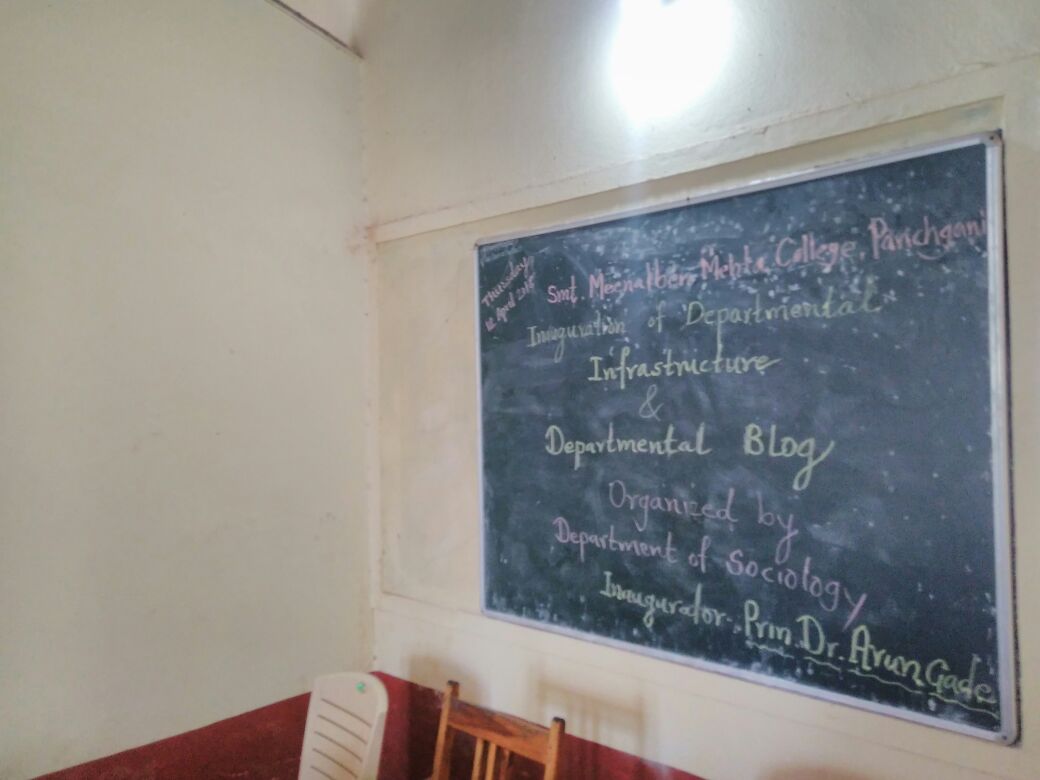 Thursday
12 April 2018
Smt. Meenalben Mehta College, Panchgani
Inauguration of Departmental
Infrastructure
&
Departmental Blog
Organized by
Department of Sociology
Inaugurator. Prin. Dr. Arun Gade